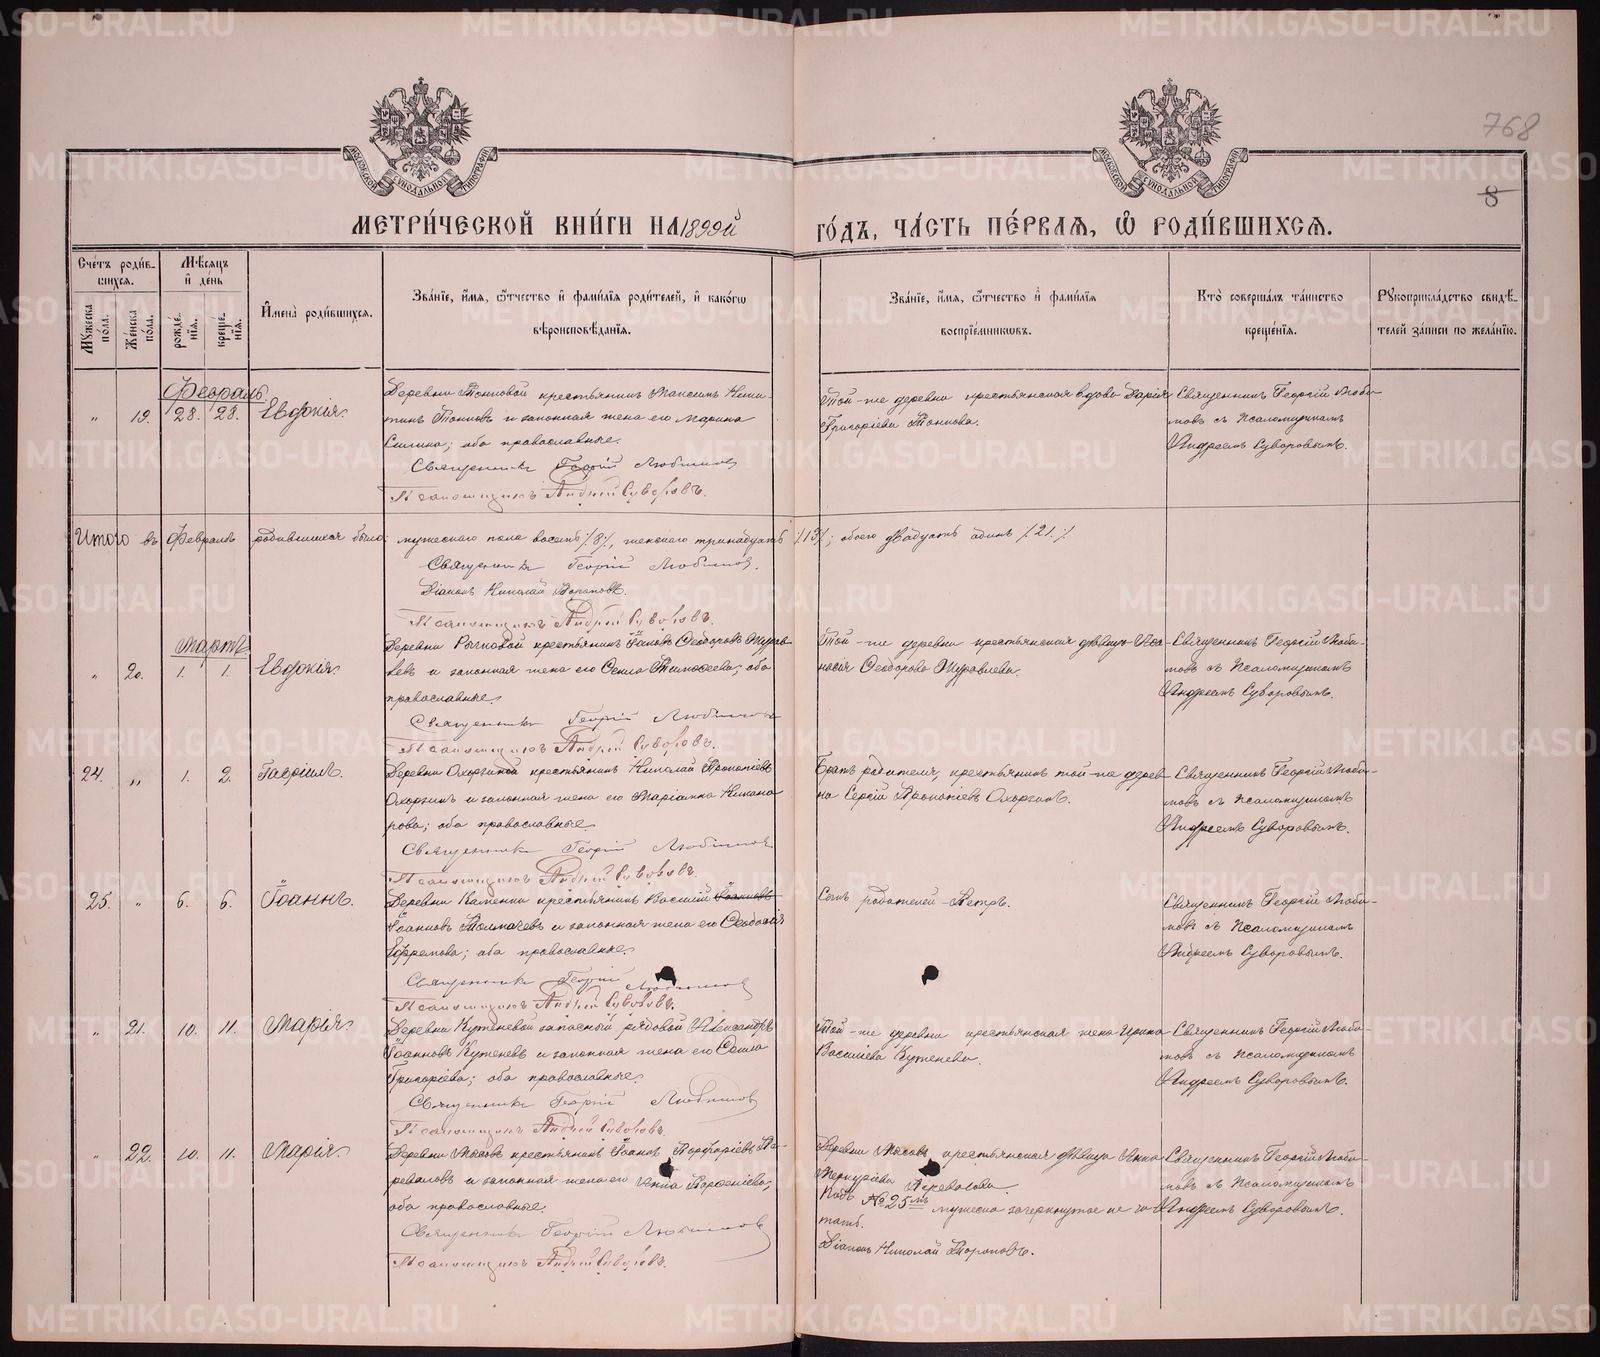 768
8
МЕТРИ́ЧЕСКОЙ КНИ́ГИ НА 1899й ГО́ДЪ, ЧА́СТЬ ПЕ́РВАЯ, Ѡ РОДИ́ВШИХСЯ.
Счетъ роди́вшихся.
Мужеска пола.
Женска пола.
Мѣсяцъ и день
рожденія.
крещенія.
Имена роди́вшихся.
Званіе, имя, ѿчество и фамилія родителей, и какогѡ вѣроисповѣданія.
Званіе, имя, ѿчество и фамилія воспріемниковъ.
Кто совершалъ таинство крещенія.
Рукоприкладство свидѣтелей записи по желанію.
Февраль
" 19. 28. 28. Евдокія.
крестьянинъ Максимъ Ники-
тинъ и законная жена его Марина
оба православные.
Священникъ Георгій Любимовъ
Псаломщикъ Андрей Суворовъ.
Той-же деревни крестьянская вдова Дарія
Григоріева
Священникъ Георгій Люби-
мовъ съ псаломщикомъ
Андреемъ Суворовымъ.
Итого въ Февралѣ родившихся было: мужескаго пола восемь /8/, женскаго тринадцать /13/; обоего двадцать одинъ /21./
Священникъ Георгій Любимовъ.
Діаконъ Николай Тороповъ.
Псаломщикъ Андрей Суворовъ.
Мартъ
" 20. 1. 1. Евдокія.
Деревни крестьянинъ Іаковъ Ѳеодоровъ Журав-
левъ и законная жена его Ѳекла Тимоѳеева; оба
православные.
Священникъ Георгій Любимовъ
Псаломщикъ Андрей Суворовъ.
Той-же деревни крестьянская дѣвица Аѳа-
насія Ѳеодорова Журавлева.
Священникъ Георгій Люби-
мовъ съ псаломщикомъ
Андреемъ Суворовымъ.
24. " 1. 2. Гавріилъ.
Деревни Охоргиной крестьянинъ Николай Прокопіевъ
Охоргинъ и законная жена его Маріамна Никано-
рова; оба православные.
Священникъ Георгій Любимовъ
Псаломщикъ Андрей Суворовъ.
Братъ родителя, крестьянинъ той-же дерев-
ни Сергій Прокопіевъ Охоргинъ.
Священникъ Георгій Люби-
мовъ съ псаломщикомъ
Андреемъ Суворовымъ.
25. " 6. 6. Іоаннъ.
Деревни Каменки крестьянинъ Василій Іоанновъ
Іоанновъ Толмачевъ и законная жена его Ѳеодосія
Ефремова; оба православные.
Священникъ Георгій Любимовъ
Псаломщикъ Андрей Суворовъ.
Сынъ родителей Петръ.
Священникъ Георгій Люби-
мовъ съ псаломщикомъ
Андреемъ Суворовымъ.
" 21. 10. 11. Марія.
Деревни Кутеневой запасный рядовой Александръ
Іоанновъ Кутеневъ и законная жена его Ѳекла
Григоріева; оба православные.
Священникъ Георгій Любимовъ
Псаломщикъ Андрей Суворовъ.
Той-же деревни крестьянская жена Ирина
Василіева Кутенева.
Священникъ Георгій Люби-
мовъ съ псаломщикомъ
Андреемъ Суворовымъ.
" 22. 10. 11. Марія.
Деревни крестьянинъ Іоаннъ Порфиріевъ Пе-
реваловъ и законная жена его Анна Парѳеніева;
оба православные.
Священникъ Георгій Любимовъ
Псаломщикъ Андрей Суворовъ.
Деревни крестьянская дѣвица Анна
Меркуріева Перевалова.
Подъ №25мъ мужеска зачеркнутое не чи-
тать.
Діаконъ Николай Тороповъ.
Священникъ Георгій Люби-
мовъ съ псаломщикомъ
Андреемъ Суворовымъ.
METRIKI.GASO-URAL.RU